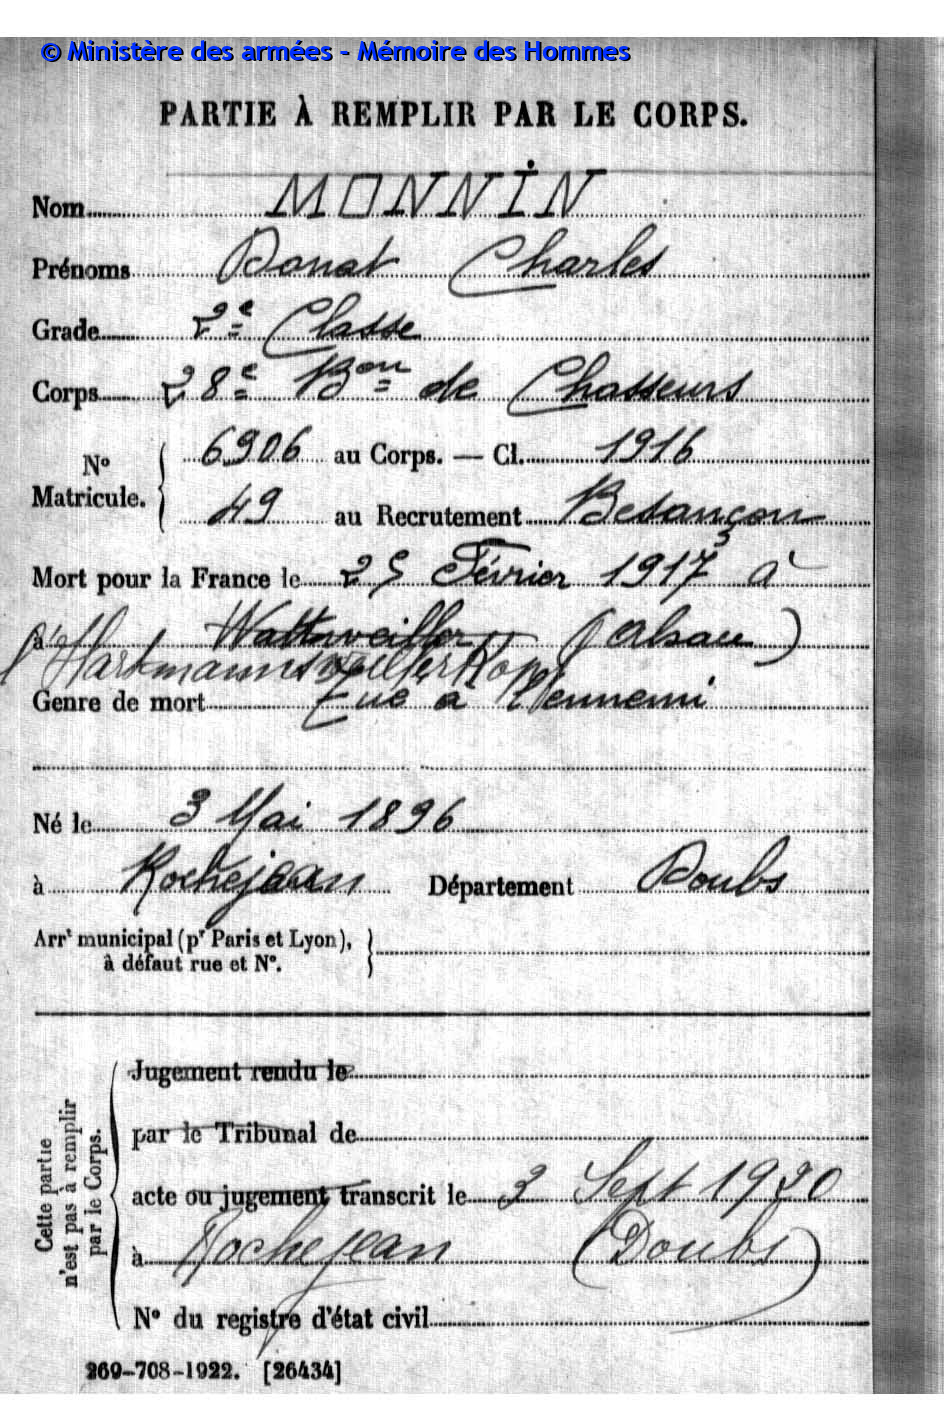 © Ministère des armées - Mémoire des Hommes
PARTIE À REMPLIR PAR LE CORPS.
Nom MONNIN
Prénoms Donat Charles
Grade 2e Classe
Corps 28e Bon de Chasseurs
No Matricule. { 6906 au Corps. — Cl. 1916
49 au Recrutement Besançon
Mort pour la France le 25 Février 1917 à
à Wattweiller (Alsace)
l'Hartmannsweiller Kopf
Genre de mort Tué à l'ennemi
Né le 3 Mai 1896
à Rochejean Département Doubs
Arrt municipal (pr Paris et Lyon),
à défaut rue et No.
Cette partie
n'est pas à remplir
par le Corps.
Jugement rendu le
par le Tribunal de
acte ou jugement transcrit le 3 Sept 1920
à Rochejean (Doubs)
No du registre d'état civil
269-708-1922. [26434]